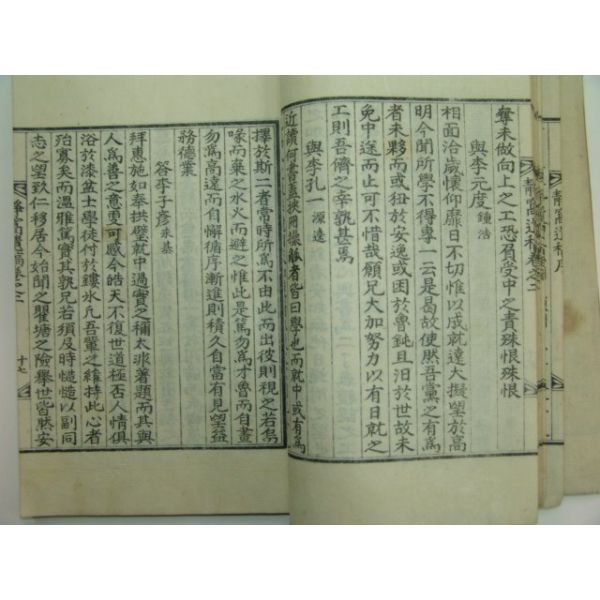 靜窩遺稿
奪未做向上之工恐負受中之責殊恨殊恨
與李元度 鍾浩
相面洽歲懷仰靡日不切惟以成就達大擬望於高
明今聞所學不得專一云是曷故使然吾黨之有爲
者未夥而或狃於安逸或困於魯鈍且汩於世故未
免中途而止可不惜哉願兄大加努力以有日就之
工則吾儕之幸孰甚焉
與李孔一 源達
近讀何書蓋挾冊操觚者皆曰學也而就中或有爲
靜窩遺稿卷之二
擇於斯二者當時所爲不由此而出彼則視之若烏
喙而棄之水火而避之惟此是篤勿爲才魯而自畫
勿爲高遠而自懈循序漸進則積久自當有見望益
務德業
答李子彥
拜惠施如奉拱璧就中過實之稱太浪著題而其與
人爲善之意更可感今皓天不復世道極否人情俱
浴於漆盆士學徒付於鏤氷凡吾輩之維持此心者
殆寡矣而溫雅篤實其孰兄若須及時慥慥以副同
志之望致仁移居今始聞之瞿塘之險擧世皆然安
靜窩遺稿卷之二
十七